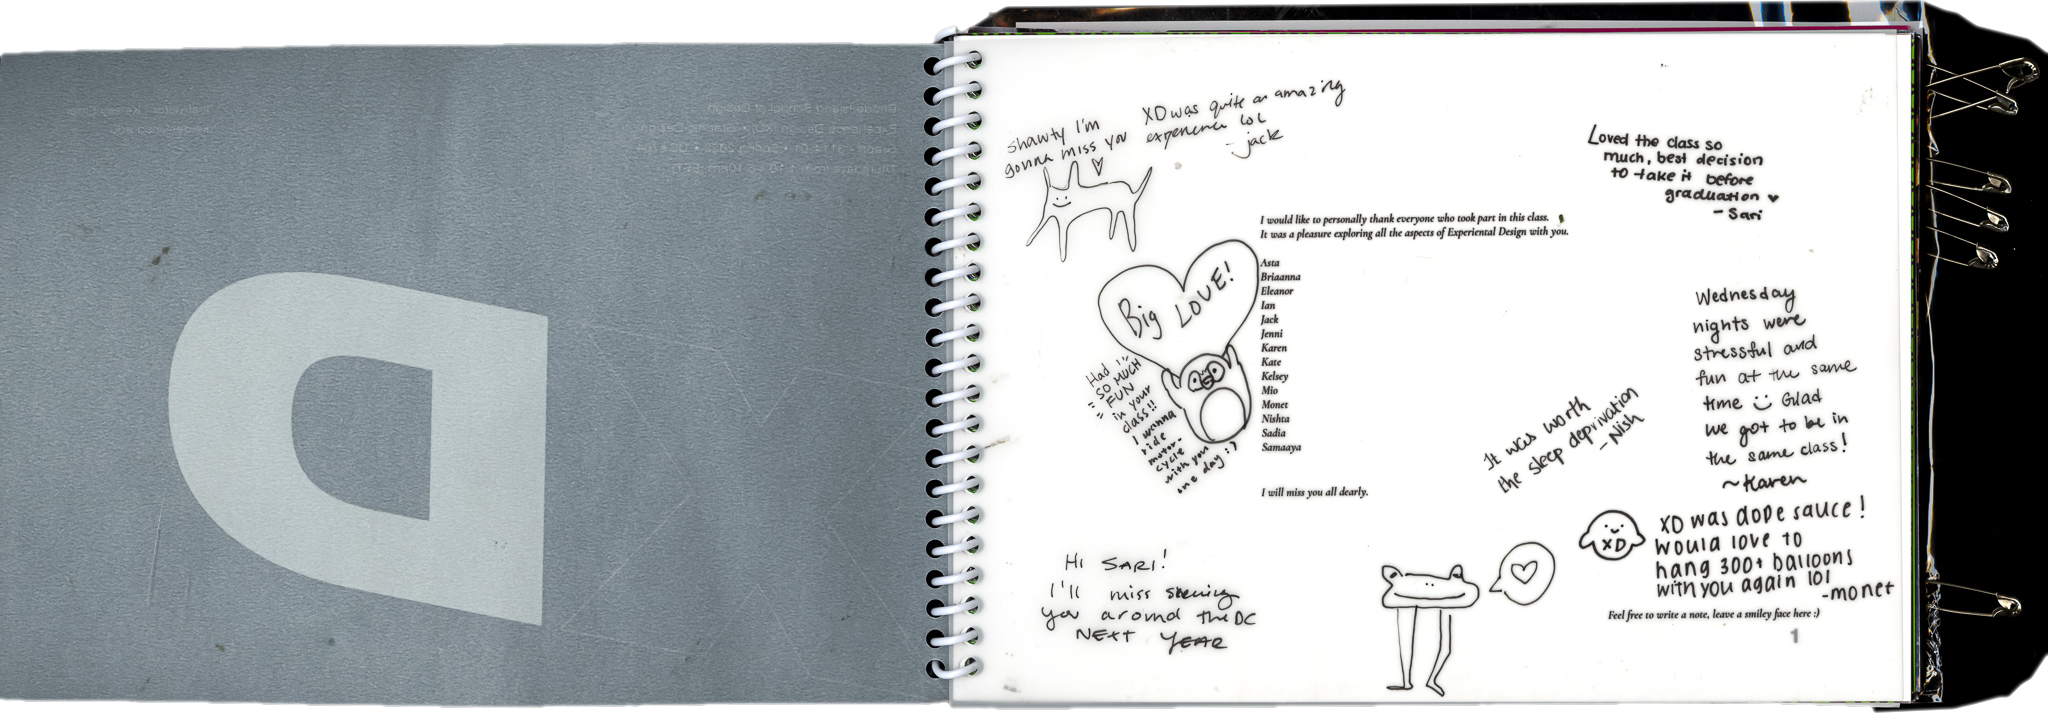 D
shawty I'm
gonna miss you
XD was quite an amazing
experience lol
- jack
Loved the class so
much, best decision
to take it before
graduation
- Sari
I would like to personally thank everyone who took part in this class.
It was a pleasure exploring all the aspects of Experiental Design with you.
Asta
Briaanna
Eleanor
Ian
Jack
Jenni
Karen
Kate
Kelsey
Mio
Monet
Nishta
Sadia
Samaaya
I will miss you all dearly.
Big LOVE!
Had
SO MUCH
FUN
in your
class!!
I wanna
ride
motor-
cycle
with you
one day :)
Wednesday
nights were
stressful and
fun at the same
time Glad
we got to be in
the same class!
~Karen
It was worth
the sleep deprivation
- Nish
XD
XD was dope sauce!
would love to
hang 300+ balloons
with you again lol
-monet
HI SARI!
I'll miss seeing
you around the DC
NEXT YEAR
Feel free to write a note, leave a smiley face here :)
1